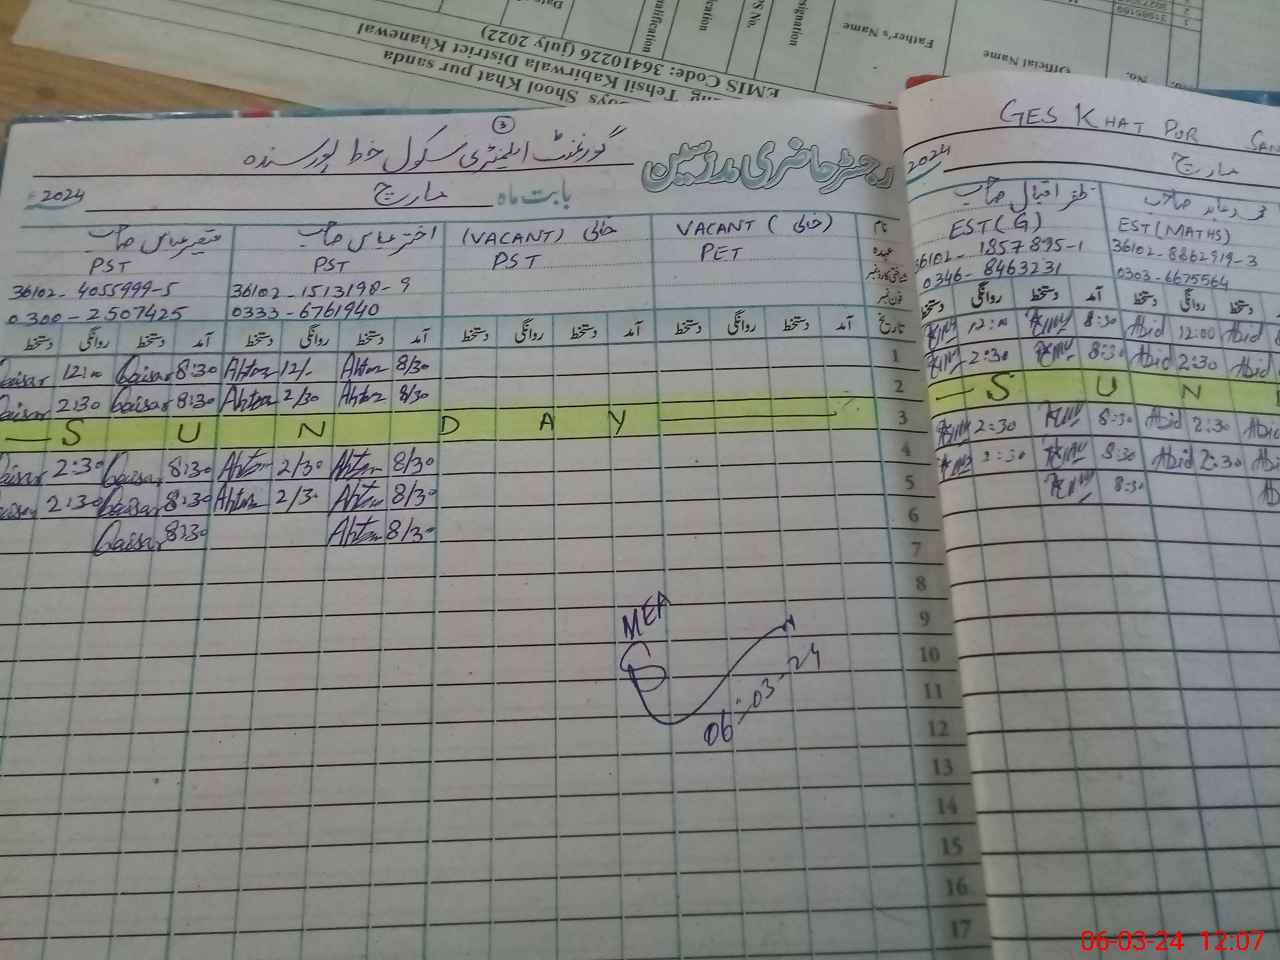 Official Name
Father's Name
EMIS Code: 36410226 (July 2022)
Tehsil Kabirwala District Khanewal
Shool Khat pur sanda
3
گورنمنٹ ایلیمنٹری سکول خط پور سنڈہ
رجسٹر حاضری مدرسین
2024 مارچ بابت ماہ
قیصر عباس صاحب
PST
36102-4055999-5
0300-2507425
اختر عباس صاحب
PST
36102-1513198-9
0333-6761940
(VACANT) خالی
PST
VACANT (خالی)
PET
نام
عہدہ
تاریخ آمد دستخط روانگی دستخط آمد دستخط روانگی دستخط آمد دستخط روانگی دستخط آمد دستخط روانگی دستخط
Qaisar 12:00 Qaisar 8:30 Ahtar 12/- Ahtar 8/30 1
Qaisar 2:30 Qaisar 8:30 Ahtar 2/30 Ahtar 8/30 2
S U N D A Y 3
Qaisar 2:30 Qaisar 8:30 Ahtar 2/30 Ahtar 8/30 4
Qaisar 2:30 Qaisar 8:30 Ahtar 2/30 Ahtar 8/30 5
Qaisar 8:30 Ahtar 8/30 6
7
8
9
10
11
12
13
14
15
16
17
MEA
06-03-24
GES KHAT PUR SAN
2024 مارچ
ظفر اقبال صاحب
EST (G)
36102-1857895-1
0346-8463231
محمد عابد صاحب
EST (MATHS)
36102-8862919-3
0303-6675564
دستخط روانگی دستخط آمد دستخط روانگی دستخط
12:00 8:30 Abid 12:00 Abid
2:30 8:30 Abid 2:30 Abid
S U N
2:30 8:30 Abid 2:30 Abid
2:30 8:30 Abid 2:30 Abid
8:30
06-03-24 12:07